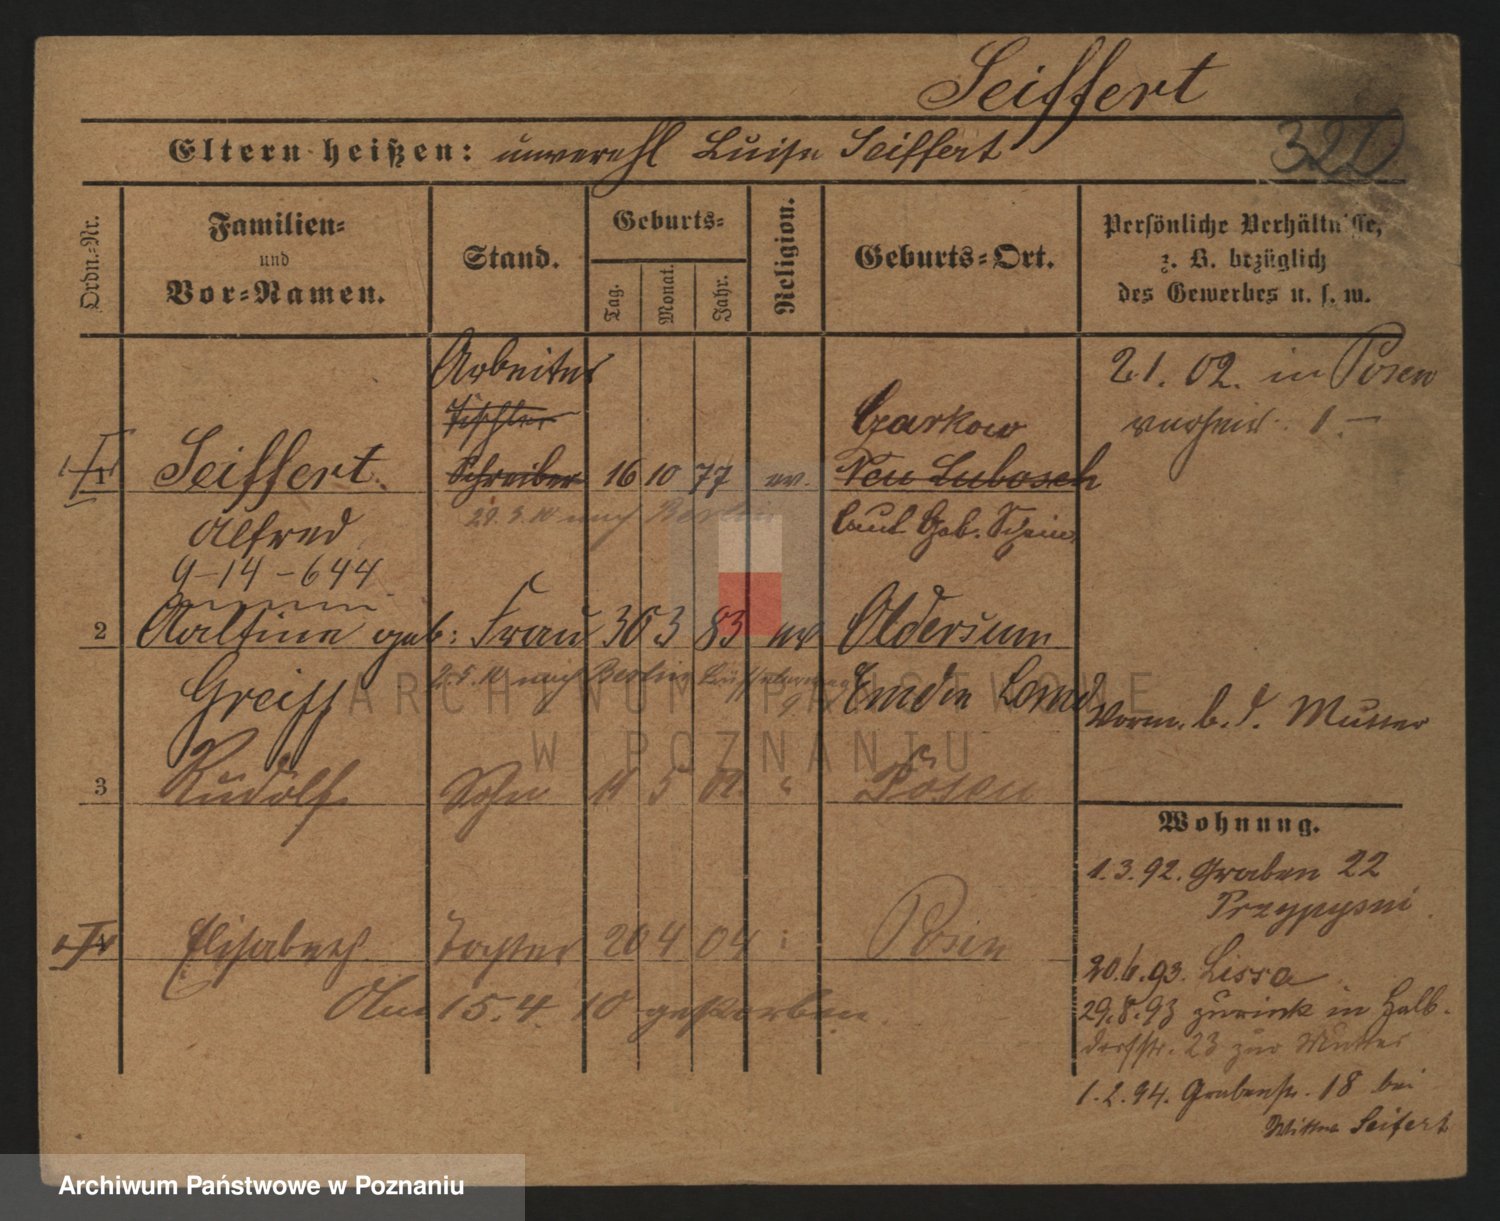 Seiffert
320
Eltern heißen: unverehl Luise Seiffert
Ordn.-Nr.
Familien-
und
Vor-Namen.
Stand.
Geburts-
Tag.
Monat.
Jahr.
Religion.
Geburts-Ort.
Persönliche Verhältnisse,
z. B. bezüglich
des Gewerbes u. s. w.
Arbeiter
Tischler
21. 02. in Posen
Czarkow
1 Seiffert Schreiber 16 10 77 ev. Neu Lubosch
29.3.10 nach Berlin
laut Geb. Schein
Alfred
9-14-644
2 geb: Frau 30 3 83 ev Oldersum
Greiff
2.5.10 nach Berlin
Emden Land
Vorm. b. d. Mutter
3 Rudolf Sohn 11 5 02. " Posen
Wohnung.
1.3.92. Graben 22
Przypysni
Elisabeth Tochter 20 4 04 Posen
Am 15.4.10 gestorben.
20.6.93. Lissa
29.8.93 zurück in Halb-
dorfstr. 23 zur Mutter
1.2.94. Grabenstr. 18 bei
Wittwe Seifert
ARCHIWUM PAŃSTWOWE
W POZNANIU
Archiwum Państwowe w Poznaniu